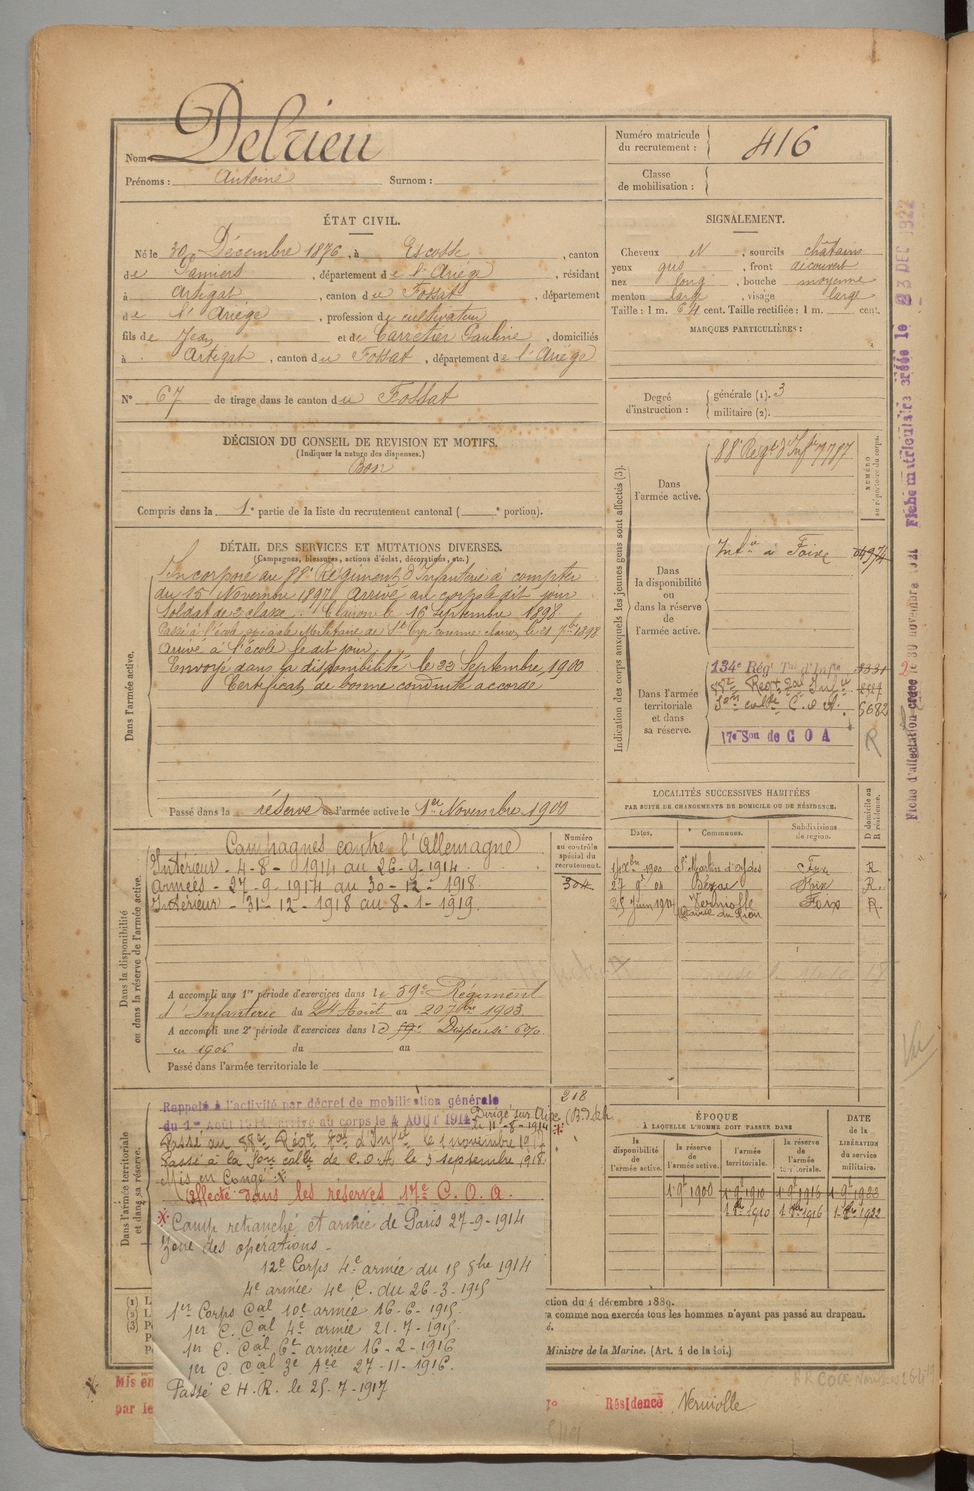 Nom Delrieu
Prénoms : Antoine Surnom :
Numéro matricule
du recrutement : 416
Classe
de mobilisation :
ÉTAT CIVIL.
Né le 30 Décembre 1876, à Escosse, canton
de Pamiers, département de l'Ariège, résidant
à Artigat, canton du Fossat, département
de l'Ariège, profession de cultivateur
fils de Jean et de Carretier Pauline, domiciliés
à Artigat, canton du Fossat, département de l'Ariège
N° 67 de tirage dans le canton du Fossat
SIGNALEMENT.
Cheveux N, sourcils châtains
yeux gris, front découvert
nez long, bouche moyenne
menton large, visage large
Taille : 1 m. 64 cent. Taille rectifiée : 1 m. cent.
MARQUES PARTICULIÈRES :
Degré
d'instruction :
générale (1). 3
militaire (2).
DÉCISION DU CONSEIL DE REVISION ET MOTIFS.
(Indiquer la nature des dispenses.)
Bon
Compris dans la 1e partie de la liste du recrutement cantonal ( e portion).
DÉTAIL DES SERVICES ET MUTATIONS DIVERSES.
(Campagnes, blessures, actions d'éclat, décorations, etc.)
Dans l'armée active.
Incorporé au 88e Régiment d'Infanterie à compter
du 15 Novembre 1897. Arrivé au corps le dit jour
Soldat de 2e classe. Clairon le 16 Septembre 1898
Passé à l'école spéciale Militaire de St Cyr comme clairon le 21 7bre 1898
Arrivé à l'école le dit jour
Envoyé dans la disponibilité le 22 Septembre 1900
Certificat de bonne conduite accordé
Passé dans la réserve de l'armée active le 1er Novembre 1900
Indication des corps auxquels les jeunes gens sont affectés (3).
NUMÉRO
au répertoire du corps.
Dans
l'armée active.
88e Regt d'Infie 7787
Dans
la disponibilité
ou
dans la réserve
de
l'armée active.
Infie à Foix 04974
Dans l'armée
territoriale
et dans
sa réserve.
134e Régt Tal d'Infie 3331
5682
17e Son de COA R
Fiche matriculaire créée le 23 DEC 1922
LOCALITÉS SUCCESSIVES HABITÉES
PAR SUITE DE CHANGEMENTS DE DOMICILE OU DE RÉSIDENCE.
Dates. Communes. Subdivisions
de région.
D domicile ou
R résidence.
St Martin d'Oydes Foix R
Bézac Foix R.
25 Juin 1914 Verniolle Foix R
Dans la disponibilité
ou dans la réserve de l'armée active.
Numéro
au contrôle
spécial du
recrutement.
304
Campagnes contre l'Allemagne
Intérieur - 4-8-1914 au 26-9-1914
Armées - 27-9-1914 au 30-12-1918.
Intérieur - 31-12-1918 au 8-1-1919.
A accompli une 1re période d'exercices dans le 59e Régiment
d'Infanterie du 24 Août au 20 7bre 1903.
A accompli une 2e période d'exercices dans le 59e Dispensé
en 1906 du au
Passé dans l'armée territoriale le
Dans l'armée territoriale
et dans sa réserve.
318
Rappelé à l'activité par décret de mobilisation générale
du 1er Août 1914. arrivé au corps le 4 AOUT 1914
le 11-8-1914
Passé au 88e Régt Tal d'Infie le 1 novembre
Passé à la calle de C.O.A. le 3 septembre 1918
Mis en Congé
Affecté dans les réserves 17e C.O.A.
Camp retranché et armée de Paris 27-9-1914
Zone des opérations -
12e Corps 4e armée du 15 8bre 1914
4e armée 4e C. du 26-3-1915
1er Corps Cal 10e armée 16-6-1915.
1er C. Cal 4e armée 21-7-1915
1er C. Cal 6e armée 16-2-1916
1er C. Cal 3e Aée 27-11-1916.
Passé C H. R. le 25-7-1917
ÉPOQUE
À LAQUELLE L'HOMME DOIT PASSER DANS
DATE
de la
LIBÉRATION
du service
militaire.
la
disponibilité
de
l'armée active.
la réserve
de
l'armée active.
l'armée
territoriale.
la réserve
de
l'armée
territoriale.
1 9e 1900 1 9e 1910 1 9e 1916
1 8bre 1910 1 8bre 1916 1 8bre 1922
ction du 4 décembre 1889.
a comme non exercés tous les hommes n'ayant pas passé au drapeau.
Ministre de la Marine. (Art. 4 de la loi.)
Mis en
par le
Résidence Verniolle